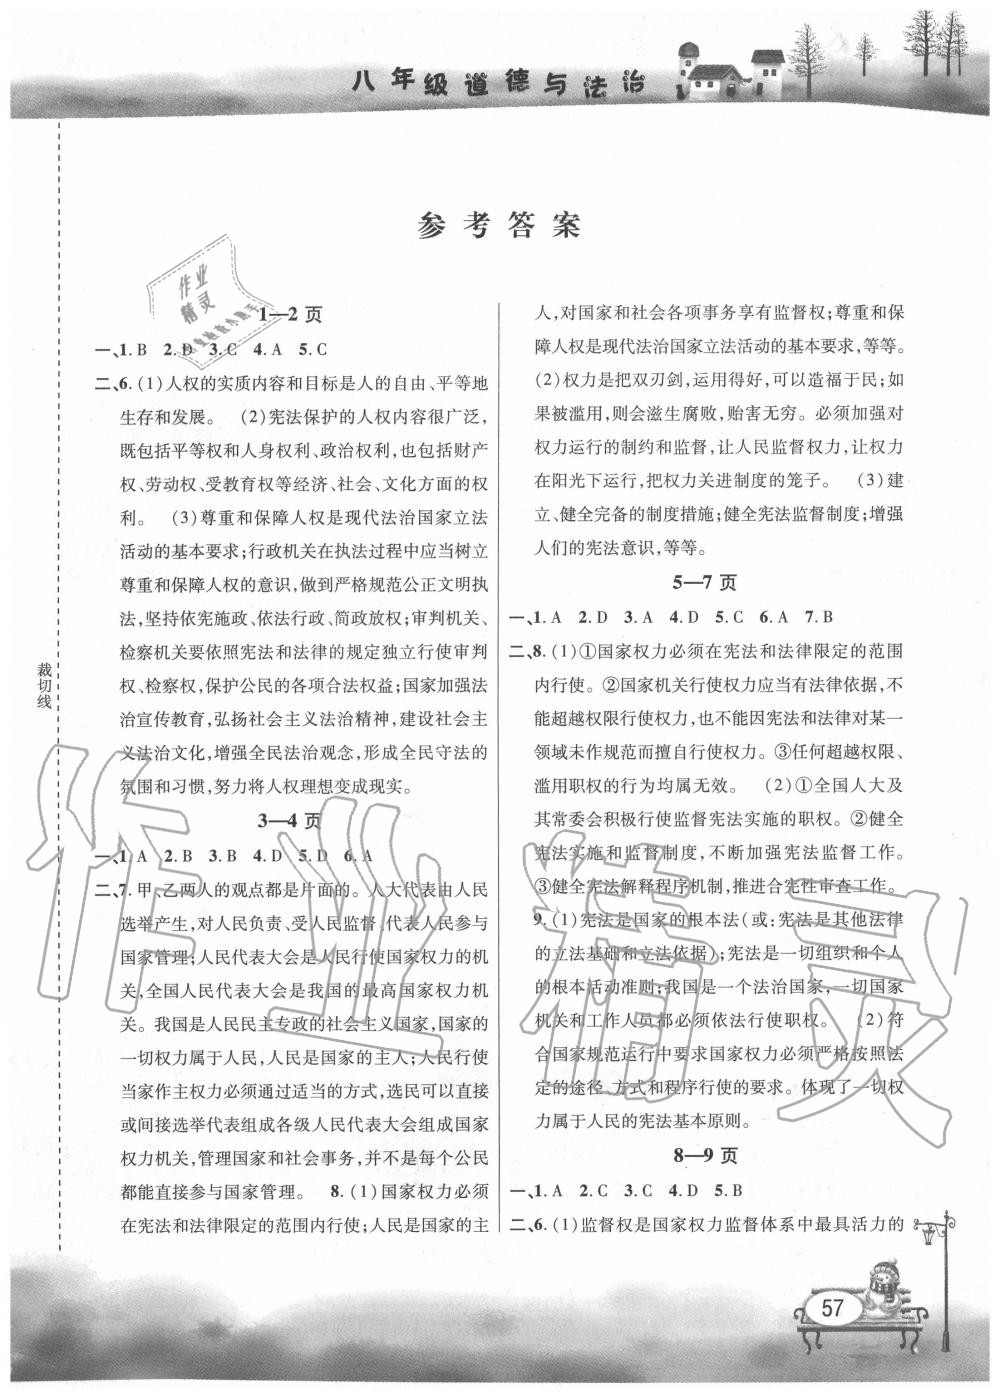 八年级道德与法治
参考答案
作业
精灵
1—2页
一、1. B 2. D 3. C 4. A 5. C
二、6. (1)人权的实质内容和目标是人的自由、平等地
生存和发展。 (2)宪法保护的人权内容很广泛,
既包括平等权和人身权利、政治权利,也包括财产
权、劳动权、受教育权等经济、社会、文化方面的权
利。 (3)尊重和保障人权是现代法治国家立法
活动的基本要求;行政机关在执法过程中应当树立
尊重和保障人权的意识,做到严格规范公正文明执
法,坚持依宪施政、依法行政、简政放权;审判机关、
检察机关要依照宪法和法律的规定独立行使审判
权、检察权,保护公民的各项合法权益;国家加强法
治宣传教育,弘扬社会主义法治精神,建设社会主
义法治文化,增强全民法治观念,形成全民守法的
氛围和习惯,努力将人权理想变成现实。
3—4页
一、1. A 2. B 3. B 4. D 5. D 6. A
二、7. 甲、乙两人的观点都是片面的。人大代表由人民
选举产生,对人民负责、受人民监督,代表人民参与
国家管理;人民代表大会是人民行使国家权力的机
关,全国人民代表大会是我国的最高国家权力机
关。我国是人民民主专政的社会主义国家,国家的
一切权力属于人民,人民是国家的主人;人民行使
当家作主权力必须通过适当的方式,选民可以直接
或间接选举代表组成各级人民代表大会组成国家
权力机关,管理国家和社会事务,并不是每个公民
都能直接参与国家管理。 8. (1)国家权力必须
在宪法和法律限定的范围内行使;人民是国家的主
人,对国家和社会各项事务享有监督权;尊重和保
障人权是现代法治国家立法活动的基本要求,等等。
(2)权力是把双刃剑,运用得好,可以造福于民;如
果被滥用,则会滋生腐败,贻害无穷。必须加强对
权力运行的制约和监督,让人民监督权力,让权力
在阳光下运行,把权力关进制度的笼子。 (3)建
立、健全完备的制度措施;健全宪法监督制度;增强
人们的宪法意识,等等。
5—7页
一、1. A 2. D 3. A 4. D 5. C 6. A 7. B
二、8. (1)①国家权力必须在宪法和法律限定的范围
内行使。②国家机关行使权力应当有法律依据,不
能超越权限行使权力,也不能因宪法和法律对某一
领域未作规范而擅自行使权力。③任何超越权限、
滥用职权的行为均属无效。 (2)①全国人大及
其常委会积极行使监督宪法实施的职权。②健全
宪法实施和监督制度,不断加强宪法监督工作。
③健全宪法解释程序机制,推进合宪性审查工作。
9. (1)宪法是国家的根本法(或:宪法是其他法律
的立法基础和立法依据);宪法是一切组织和个人
的根本活动准则;我国是一个法治国家,一切国家
机关和工作人员都必须依法行使职权。 (2)符
合国家规范运行中要求国家权力必须严格按照法
定的途径、方式和程序行使的要求。体现了一切权
力属于人民的宪法基本原则。
8—9页
一、1. A 2. C 3. C 4. D 5. B
二、6. (1)监督权是国家权力监督体系中最具活力的
裁切线
作业精灵
57